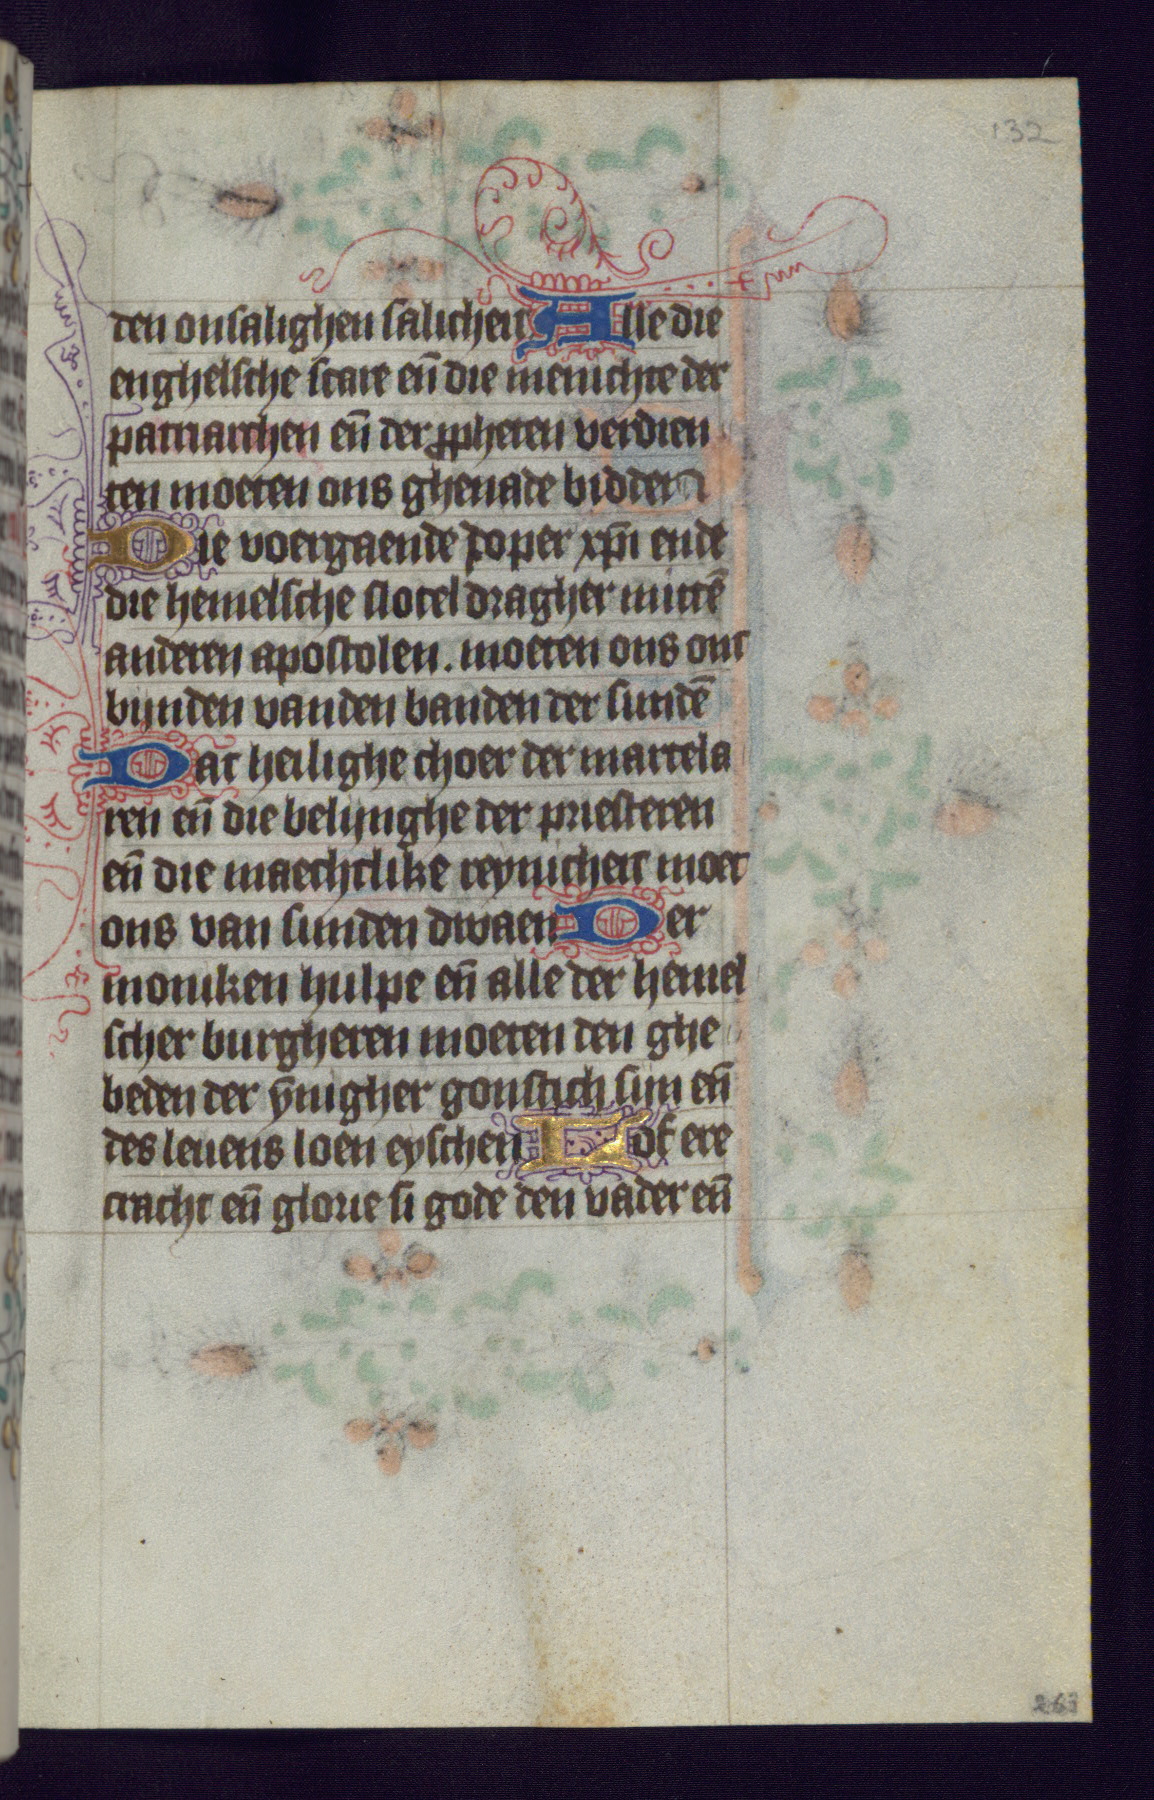 132
den onsalighen salichen Alle die
enghelsche scare en̄ die menichte der
patriarchen en̄ der ꝓpheten verdien
ten moeten ons ghenade bidden
Die voergaende doper xp̄i ende
die hemelsche slotel dragher mittē
anderen apostolen. moeten ons ont
bijnden vanden banden der sundē
Dat heilighe choer der martela
ren en̄ die belijnghe der priesteren
en̄ die maechtlike reynicheit moet
ons van sunden dwaen Der
moniken hulpe en̄ alle der hemel
scher burgheren moeten den ghe
beden der ȳnigher gonstich sijn en̄
des leuens loen eyschen Lof ere
cracht en̄ glorie si gode den vader en̄
263